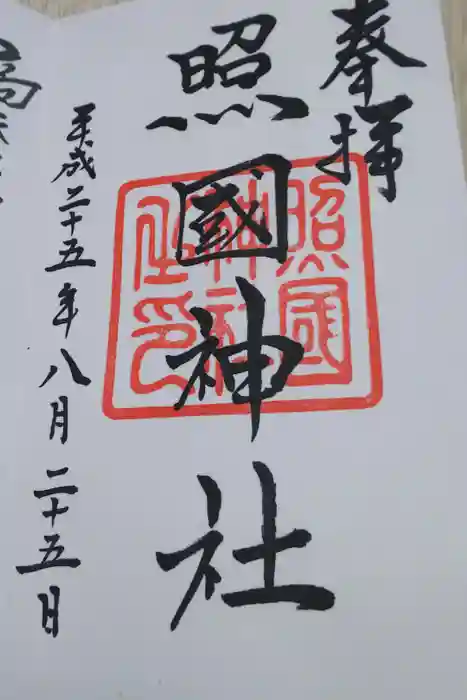 奉拝
照國神社
照国神社之印
平成二十五年八月二十五日